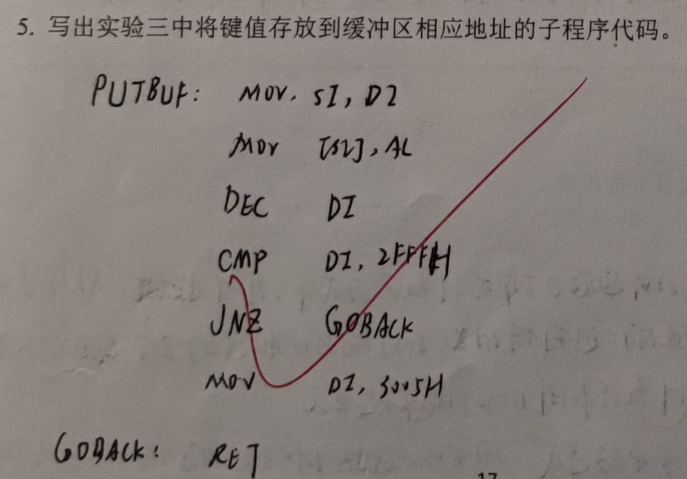 5. 写出实验三中将键值存放到缓冲区相应地址的子程序代码。
PUTBUF: MOV. SI, DI
MOV [SI], AL
DEC DI
CMP DI, 2FFFH
JNZ GOBACK
MOV DI, 3005H
GOBACK: RET
17